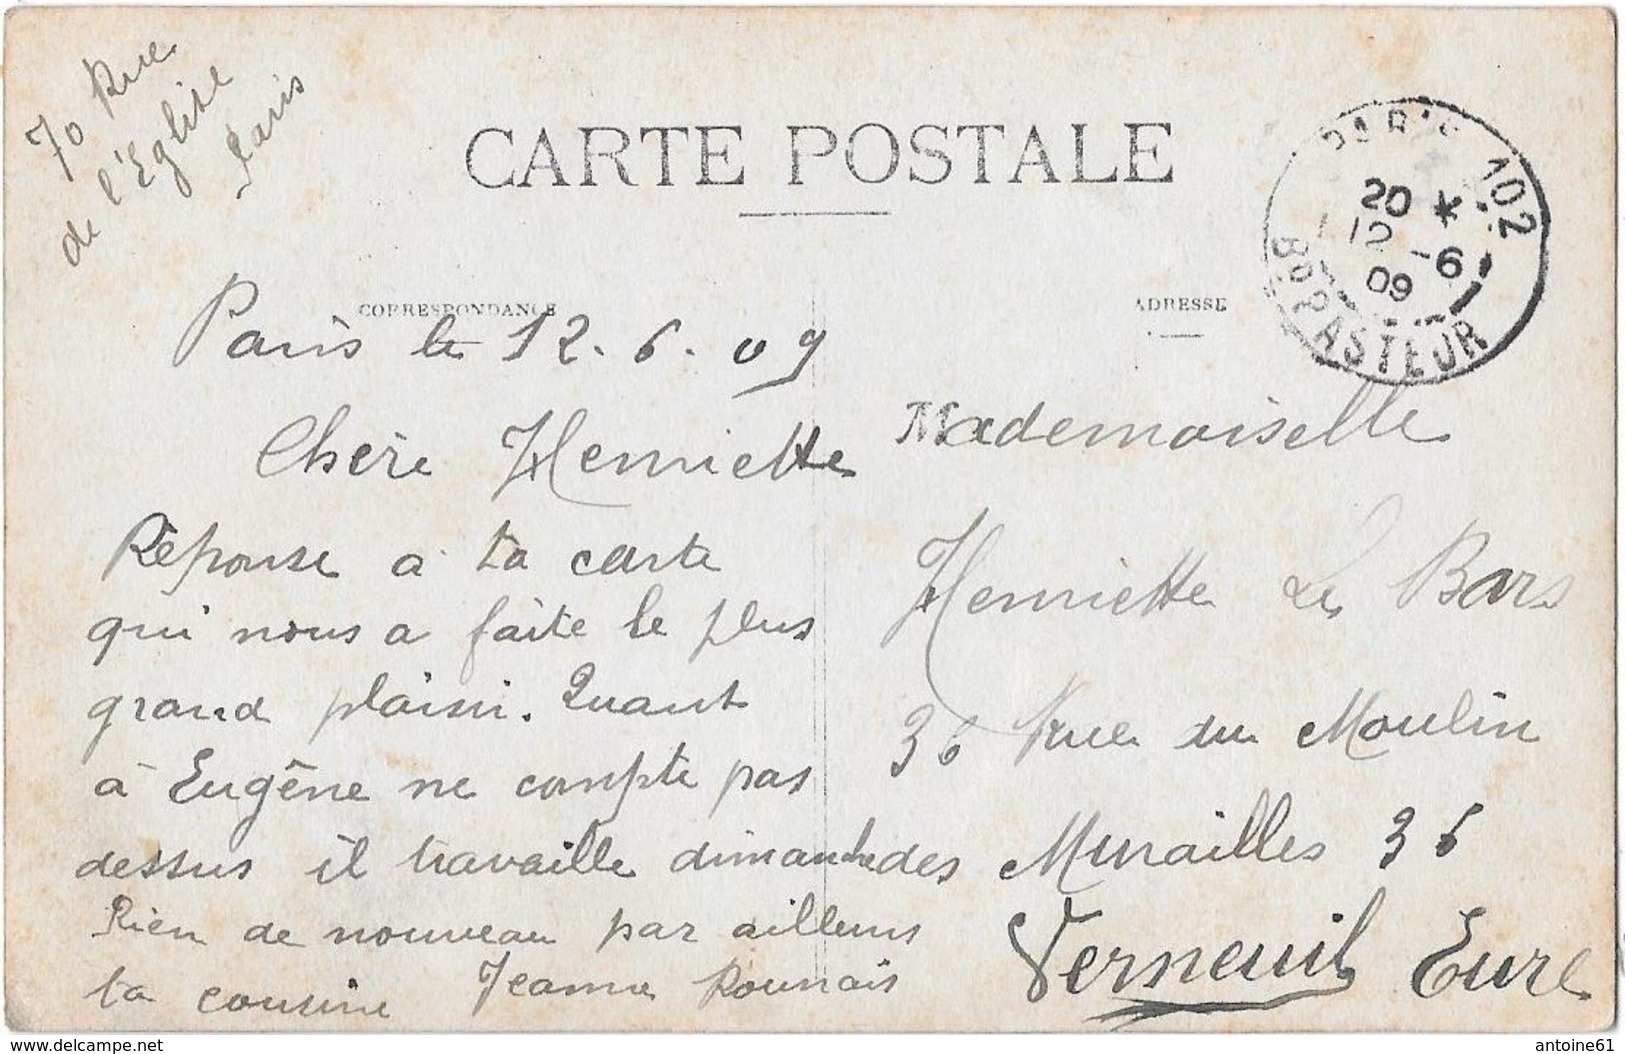 70 Rue
de l'Eglise
Paris
CARTE POSTALE
PARIS 102
20 *
12 -6
09
BD PASTEUR
CORRESPONDANCE
ADRESSE
Paris le 12.6.09
Chère Henriette
Réponse a ta carte
qui nous a faite le plus
grand plaisir. Quant
à Eugène ne compte pas
dessus il travaille dimanche
Rien de nouveau par ailleurs
ta cousine Jeanne
Mademoiselle
Henriette Le Bars
36 Rue du Moulin
des Murailles 36
Verneuil Eure
delcampe.net
antoine61